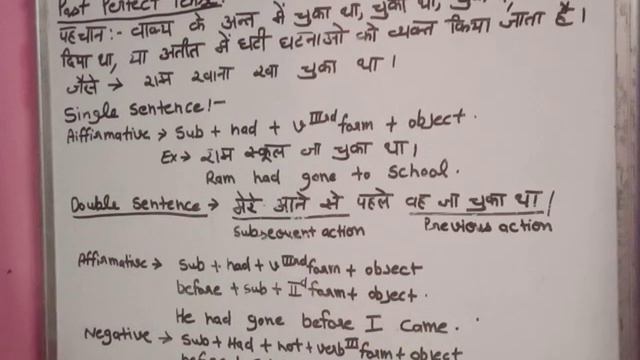 Past Perfect Tense
पहचान:- वाक्य के अन्त में चुका था, चुका था,
दिया था, या अतीत में घटी घटनाओ को व्यक्त किया जाता है।
जैसे → राम खाना खा चुका था।
Single sentence!-
Aiffirmative → Sub + had + vIIIrd form + object.
Ex → राम स्कूल जा चुका था।
Ram had gone to school.
Double sentence → मेरे आने से पहले वह जा चुका था।
Subsequent action Previous action
Affirmative → Sub + had + vIIIrd form + object
before + sub + IInd form + object.
He had gone before I came.
Negative → Sub + Had + not + verb III form + object